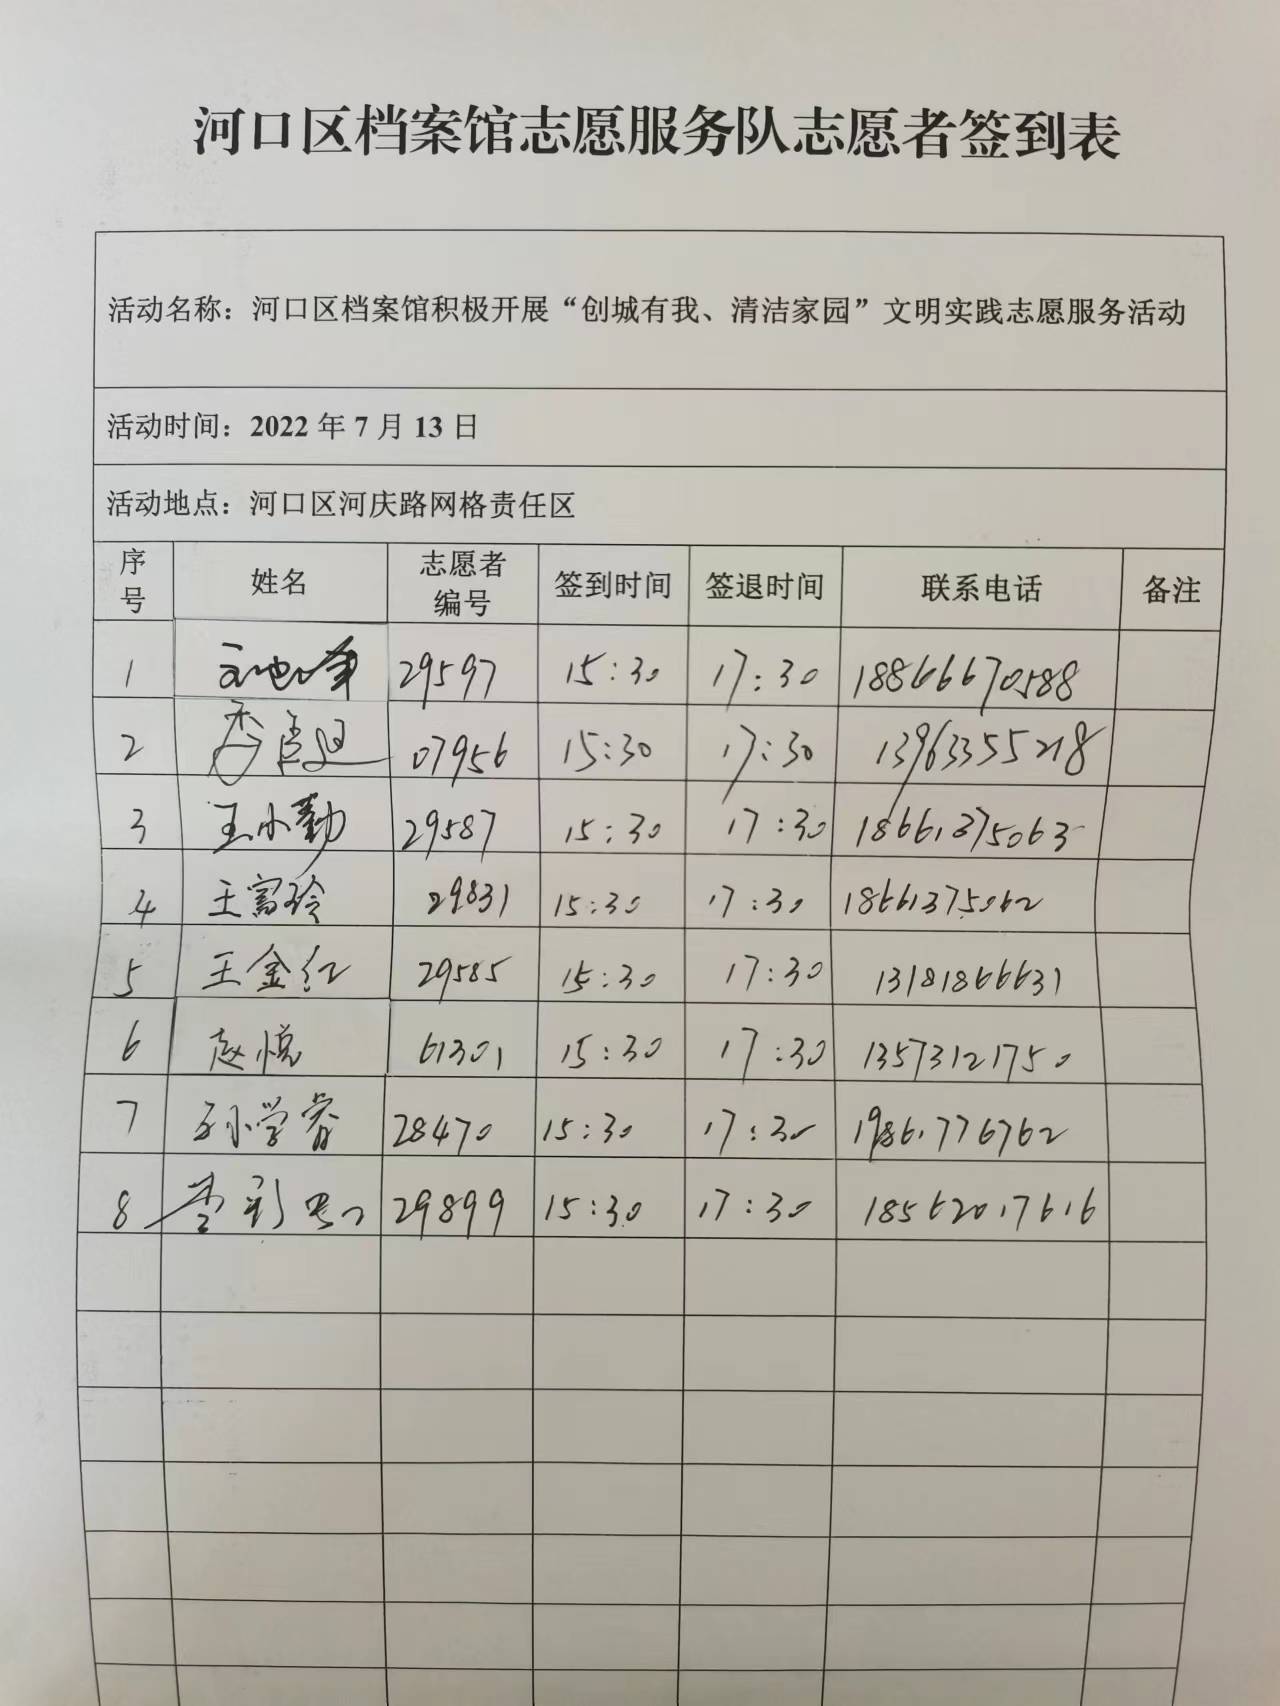 河口区档案馆志愿服务队志愿者签到表
活动名称：河口区档案馆积极开展“创城有我、清洁家园”文明实践志愿服务活动
活动时间：2022 年 7 月 13 日
活动地点：河口区河庆路网格责任区
序号 姓名 志愿者编号 签到时间 签退时间 联系电话 备注
1 29597 15:30 17:30 18866670588
2 07956 15:30 17:30 13963355218
3 王小勤 29587 15:30 17:30 18661375063
4 王富玲 29831 15:30 17:30 18661375062
5 王金红 29585 15:30 17:30 13181866631
6 赵悦 61301 15:30 17:30 13573121750
7 28470 15:30 17:30 19861776762
8 29899 15:30 17:30 18562017616